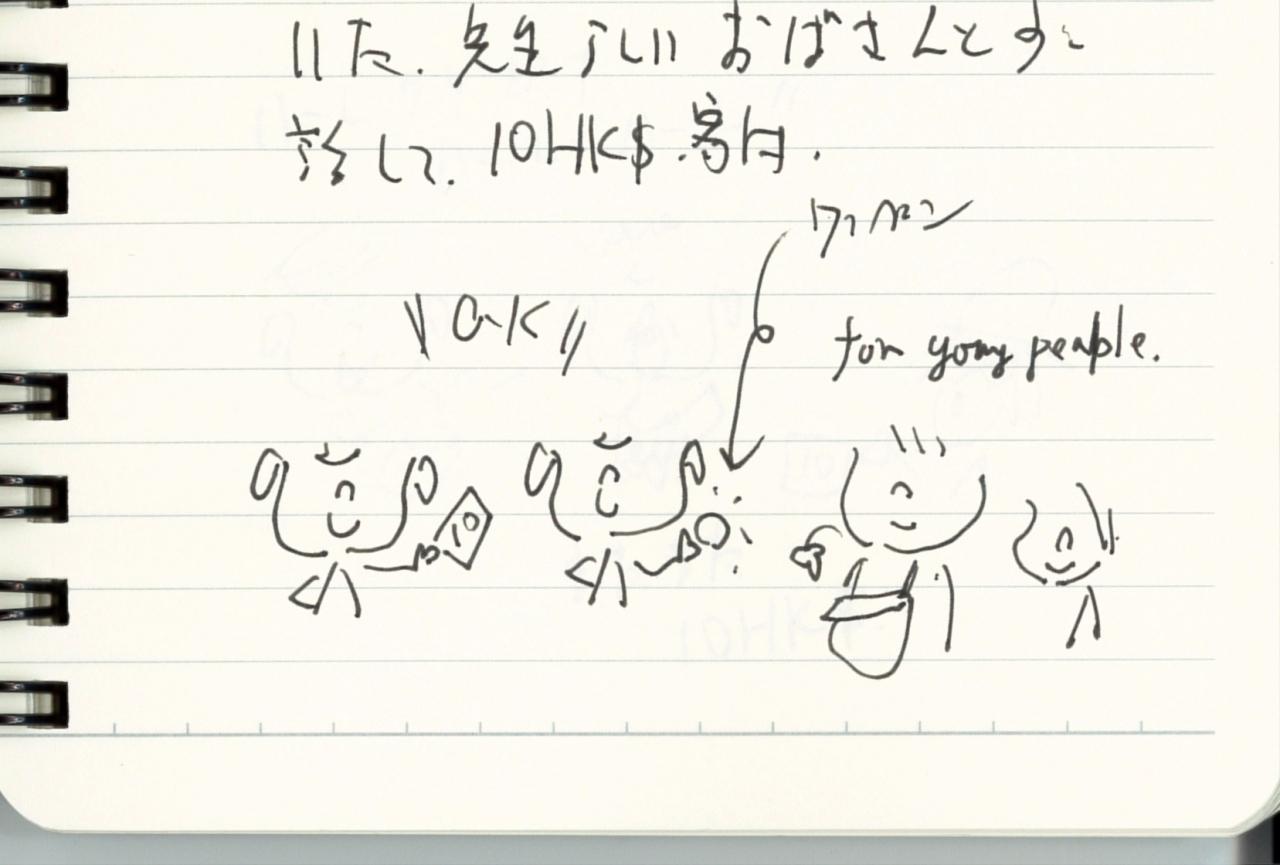 いた.先生らしいおばさんと少し
話して.10HK$.寄付.
ワッペン
"OK"
for yong people.
10